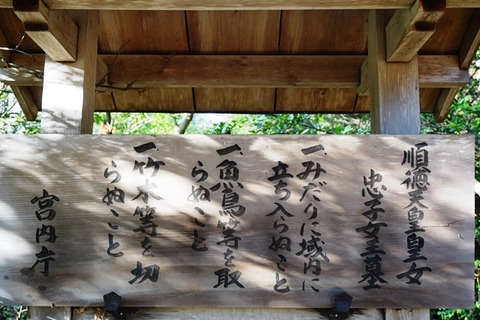 順徳天皇皇女
忠子女王墓
一、みだりに域内に
立ち入らぬこと
一、魚鳥等を取
らぬこと
一、竹木等を切
らぬこと
宮内庁